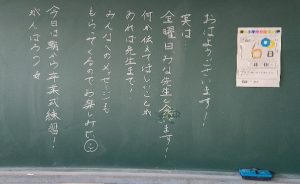 おはようございます!
実は
金曜日みな先生と会います!
何か伝えてほしいことが
あれば先生まで!
みんなへのメッセージも
もらってくるのでお楽しみに
今日は朝から卒業式練習!
がんばろう
6
日